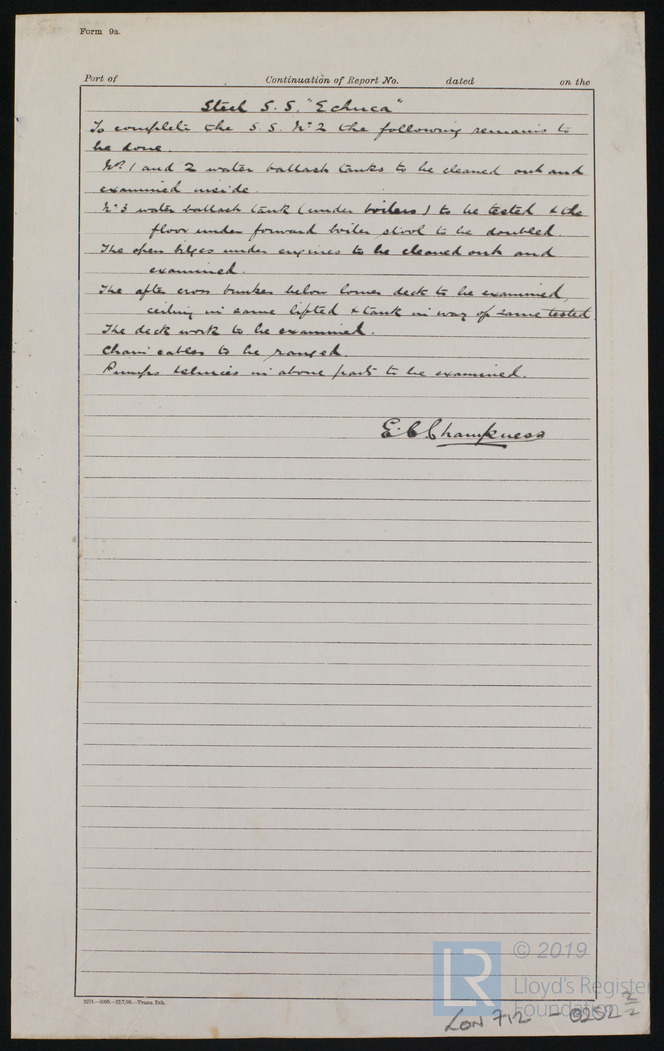 Form 9a.
Port of Continuation of Report No. dated on the
Steel S.S. "Echuca"
To complete the S.S. No 2 the following remains to
be done.
No. 1 and 2 water ballast tanks to be cleaned out and
examined inside.
No 3 water ballast tank (under boilers) to be tested & the
floor under forward boiler stool to be doubled.
The open bilges under engines to be cleaned out and
examined.
The after cross bunker below lower deck to be examined,
ceiling in same lifted & tank in way of same tested
The deck work to be examined.
Chain cables to be ranged.
Pumps & sluices in above parts to be examined.
E. C. Champness
2274.—5000.—27/7/98.—Trans. Ink.
LR © 2019
Lloyd's Register
Foundation
LON 712 - 0252 2/2